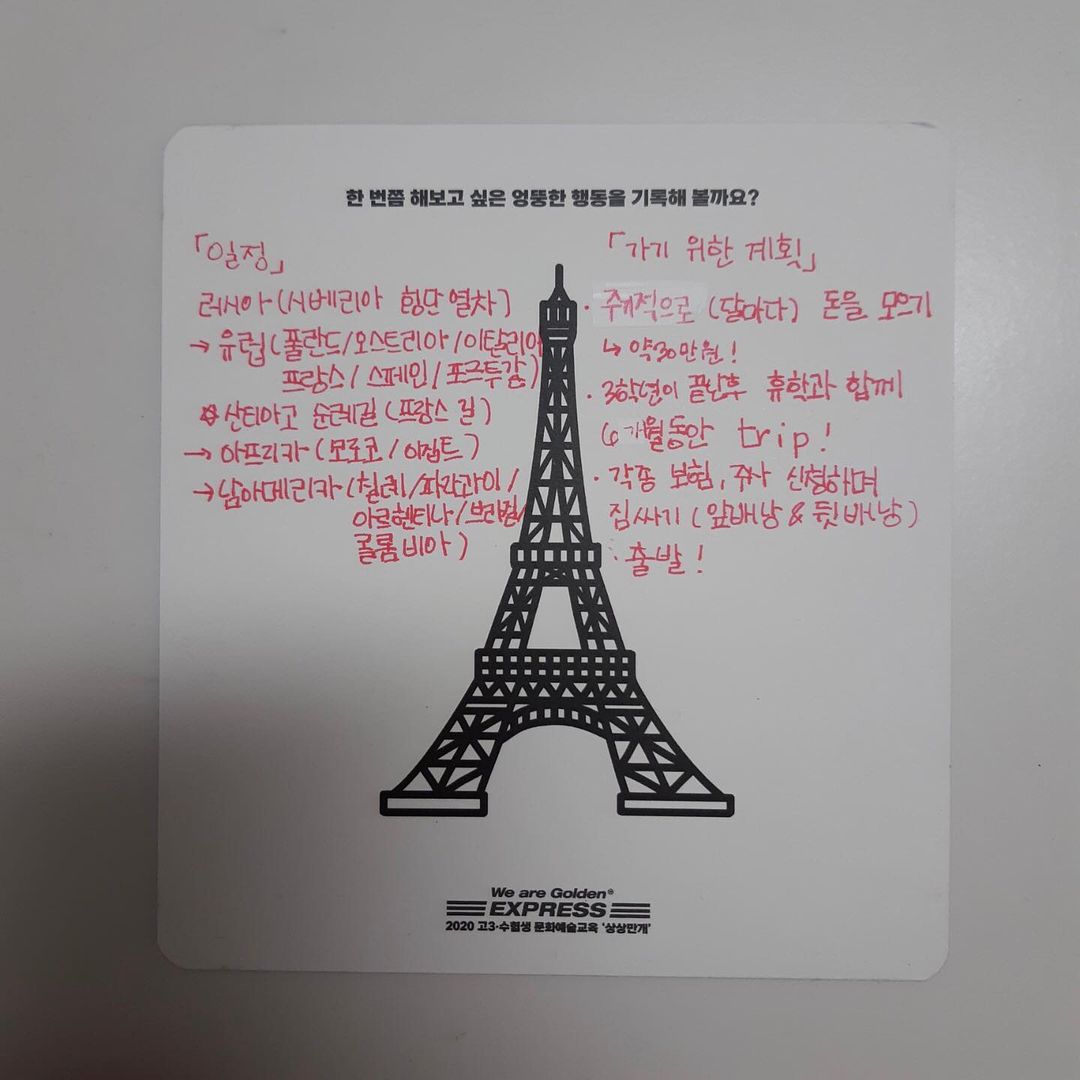 한 번쯤 해보고 싶은 엉뚱한 행동을 기록해 볼까요?
「일정」
러시아 (시베리아 횡단 열차)
→ 유럽 (폴란드/오스트리아/이탈리아
프랑스/스페인/포르투갈)
☆ 산티아고 순례길 (프랑스 길)
→ 아프리카 (모로코/이집트)
→ 남아메리카 (칠레/파라과이/
아르헨티나/브라질/
콜롬비아)
「가기 위한 계획」
· 주기적으로 (달마다) 돈을 모으기
↳ 약30만원!
· 3학년이 끝난후 휴학과 함께
6개월동안 trip!
· 각종 보험, 주사 신청하며
짐싸기 (앞배낭 & 뒷배낭)
· 출발!
We are Golden®
EXPRESS
2020 고3·수험생 문화예술교육 '상상만개'